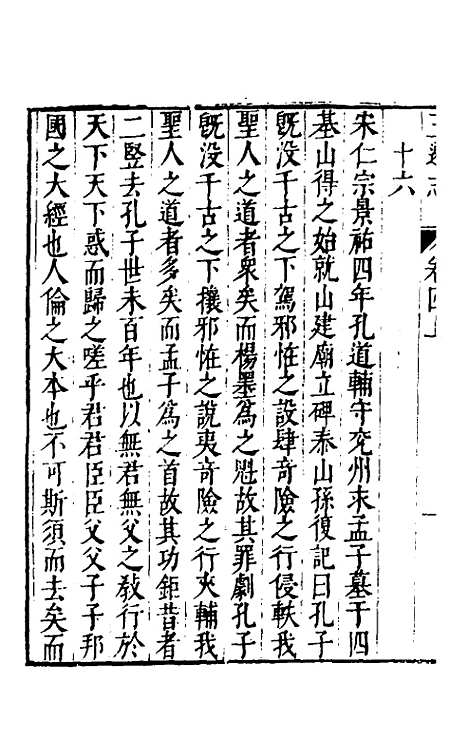 三遷志 卷四上
十六
宋仁宗景祐四年孔道輔守兖州求孟子墓于四
基山得之始就山建廟立碑泰山孫復記曰孔子
旣没千古之下駕邪恠之設肆竒險之行侵軼我
聖人之道者衆矣而楊墨爲之魁故其罪劇孔子
旣没千古之下攘邪恠之說夷竒險之行夾輔我
聖人之道者多矣而孟子爲之首故其功鉅昔者
二竪去孔子世未百年也以無君無父之敎行於
天下天下惑而歸之嗟乎君君臣臣父父子子邦
國之大經也人倫之大本也不可斯須而去矣而